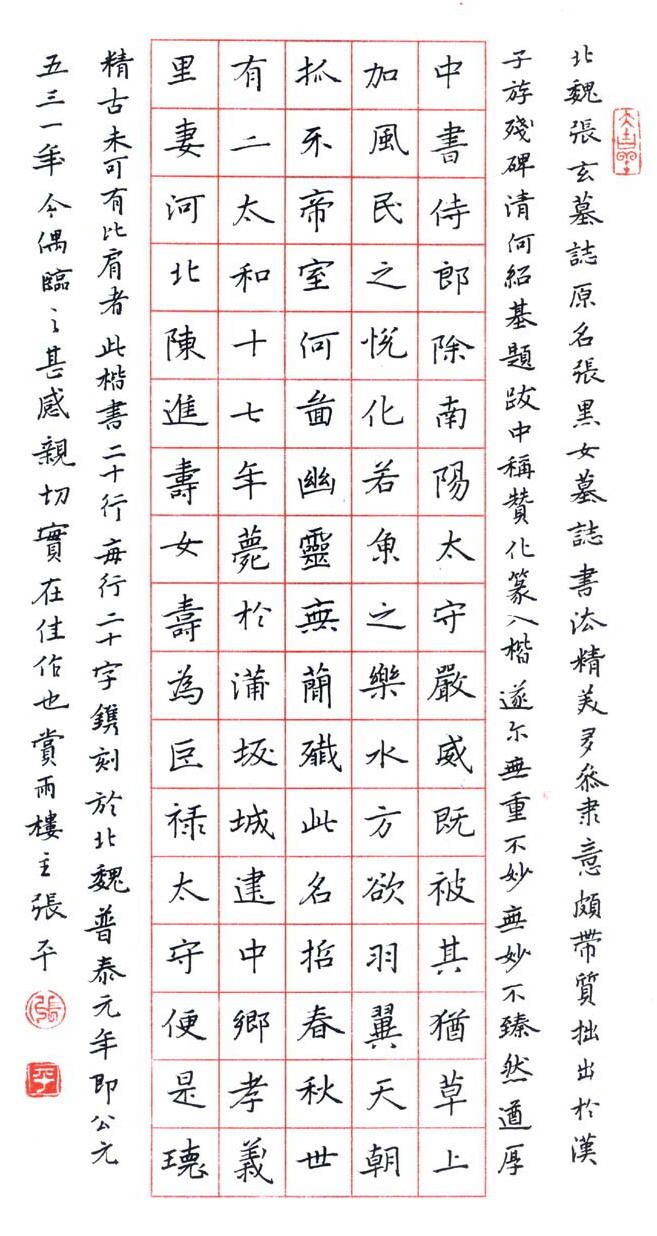 北魏張玄墓誌原名張黑女墓誌書法精美多參隶意頗帶質拙出於漢
子游殘碑清何紹基題跋中稱贊化篆入楷遂尔無重不妙無妙不臻然遒厚
中書侍郎除南陽太守嚴威既被其猶草上
加風民之悅化若魚之樂水方欲羽翼天朝
抓牙帝室何啚幽靈無簡殲此名哲春秋世
有二太和十七年薨於蒲坂城建中鄉孝義
里妻河北陳進壽女壽為巨禄太守便是瓌
精古未可有比肩者此楷書二十行每行二十字鐫刻於北魏普泰元年即公元
五三一年今偶臨之甚感親切實在佳作也賞雨樓主張平
張
平